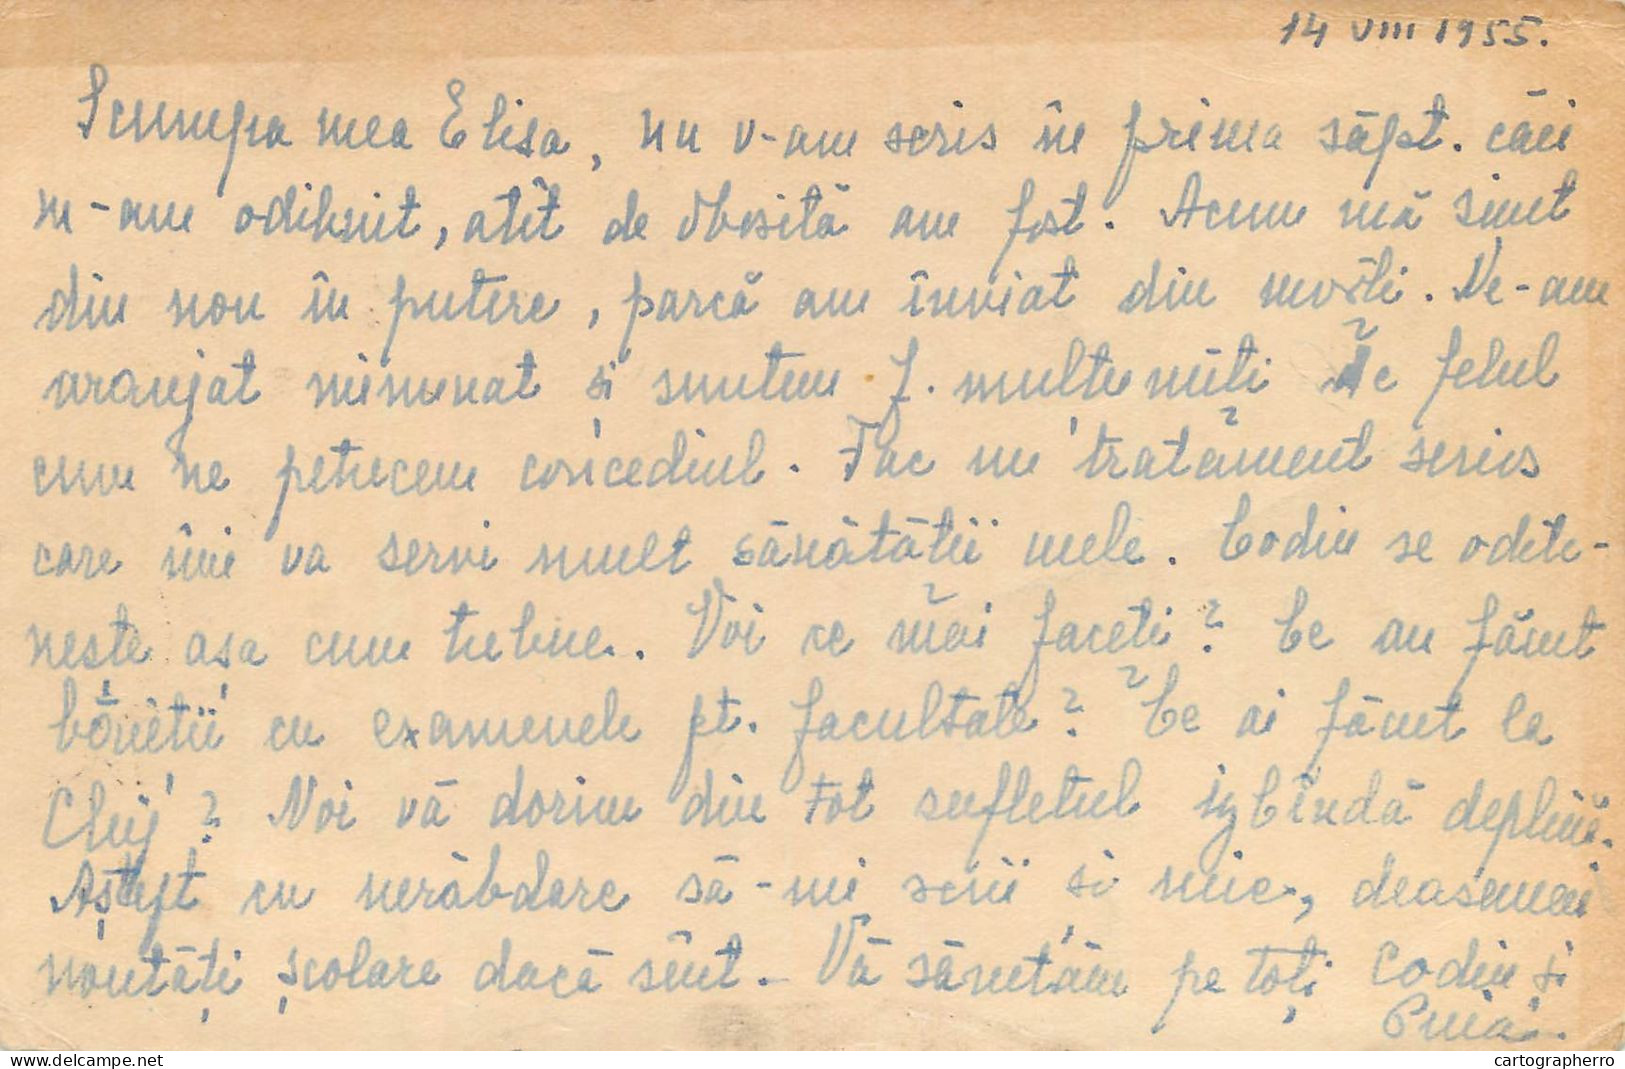 14 VIII 1955.
Scumpa mea Elisa, nu v-am scris în prima săpt. căci
m-am odihnit, atît de obosită am fost. Acum mă simt
din nou în putere, parcă am înviat din morti. Ne-am
aranjat minunat și suntem f. multumiti de felul
cum ne petrecem concediul. Fac un tratament serios
care îmi va servi mult sănătătii mele. Codin se odih-
nește așa cum trebue. Voi ce mai faceti? Ce au făcut
băietii cu examenele pt. facultate? Ce ai făcut la
Cluj? Noi vă dorim din tot sufletul izbîndă deplină.
Aștept cu nerăbdare să-mi scrii si mie, deasemeni
noutăți școlare dacă sînt. Vă sărutăm pe toți Codin și
Puia.
delcampe.net
cartographerro